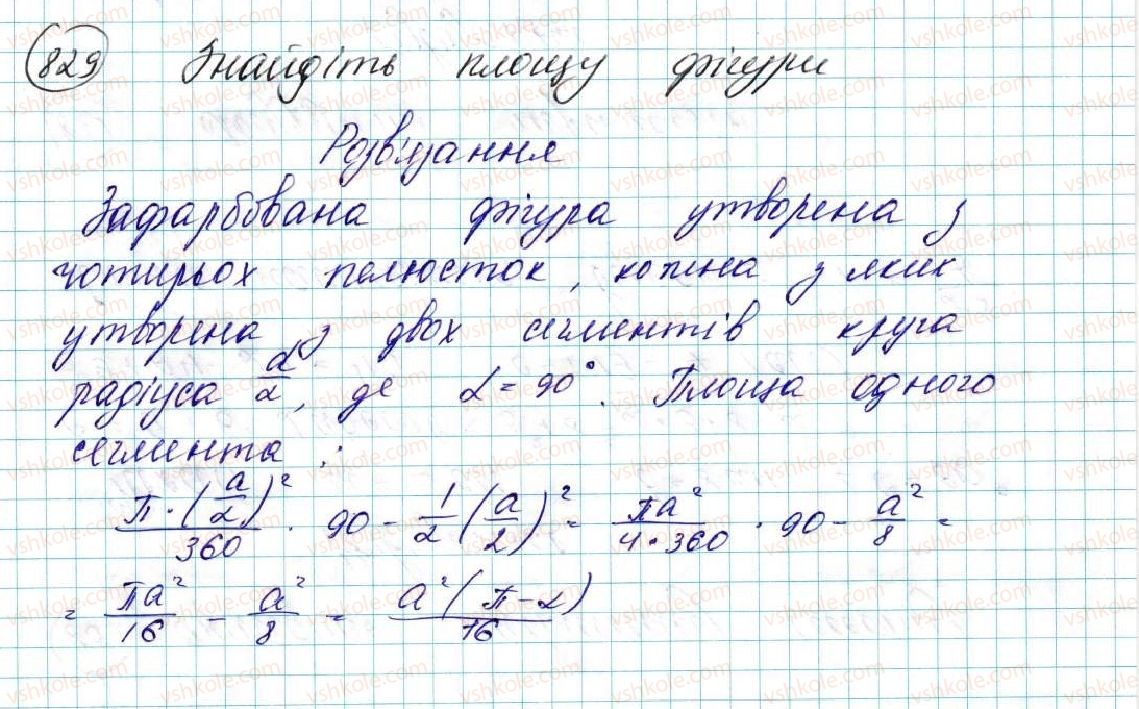 829 Знайдіть площу фігури
Розв'язання
Зафарбована фігура утворена з
чотирьох пелюсток, кожна з яких
утворена з двох сегментів круга
радіуса a/2, де α = 90°. Площа одного
сегмента:
π·(a/2)²/360 · 90 - 1/2 (a/2)² = πa²/4·360 · 90 - a²/8 =
= πa²/16 - a²/8 = a²(π-2)/16